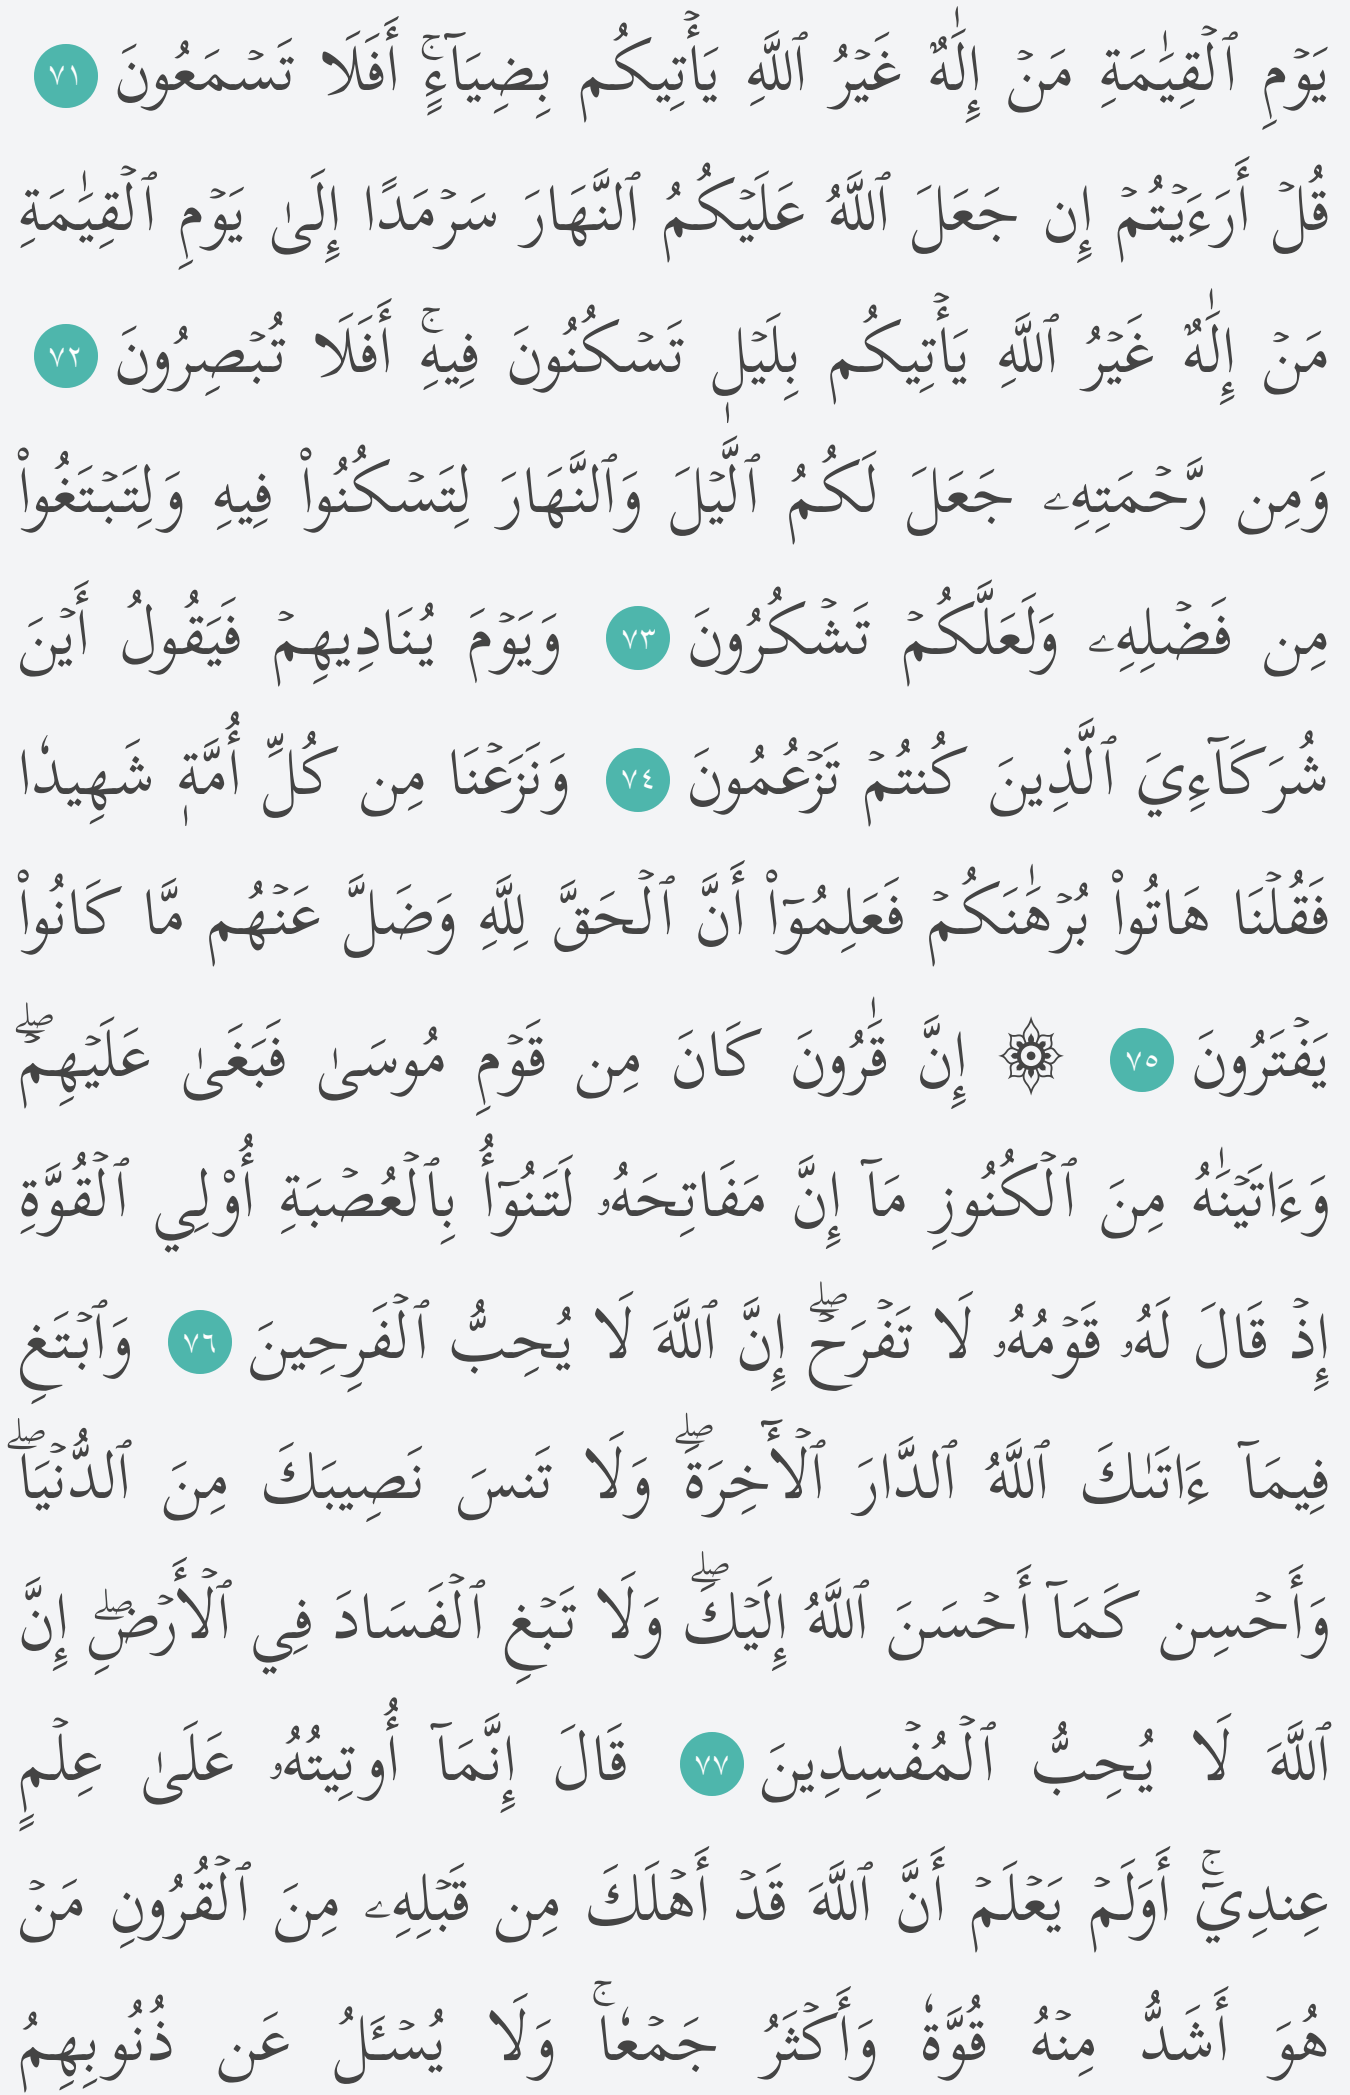 يَوۡمِ ٱلۡقِيَٰمَةِ مَنۡ إِلَٰهٌ غَيۡرُ ٱللَّهِ يَأۡتِيكُم بِضِيَآءٍۚ أَفَلَا تَسۡمَعُونَ ٧١
قُلۡ أَرَءَيۡتُمۡ إِن جَعَلَ ٱللَّهُ عَلَيۡكُمُ ٱلنَّهَارَ سَرۡمَدًا إِلَىٰ يَوۡمِ ٱلۡقِيَٰمَةِ
مَنۡ إِلَٰهٌ غَيۡرُ ٱللَّهِ يَأۡتِيكُم بِلَيۡلٖ تَسۡكُنُونَ فِيهِۚ أَفَلَا تُبۡصِرُونَ ٧٢
وَمِن رَّحۡمَتِهِۦ جَعَلَ لَكُمُ ٱلَّيۡلَ وَٱلنَّهَارَ لِتَسۡكُنُواْ فِيهِ وَلِتَبۡتَغُواْ
مِن فَضۡلِهِۦ وَلَعَلَّكُمۡ تَشۡكُرُونَ ٧٣ وَيَوۡمَ يُنَادِيهِمۡ فَيَقُولُ أَيۡنَ
شُرَكَآءِيَ ٱلَّذِينَ كُنتُمۡ تَزۡعُمُونَ ٧٤ وَنَزَعۡنَا مِن كُلِّ أُمَّةٖ شَهِيدٗا
فَقُلۡنَا هَاتُواْ بُرۡهَٰنَكُمۡ فَعَلِمُوٓاْ أَنَّ ٱلۡحَقَّ لِلَّهِ وَضَلَّ عَنۡهُم مَّا كَانُواْ
يَفۡتَرُونَ ٧٥ ۞ إِنَّ قَٰرُونَ كَانَ مِن قَوۡمِ مُوسَىٰ فَبَغَىٰ عَلَيۡهِمۡۖ
وَءَاتَيۡنَٰهُ مِنَ ٱلۡكُنُوزِ مَآ إِنَّ مَفَاتِحَهُۥ لَتَنُوٓأُ بِٱلۡعُصۡبَةِ أُوْلِي ٱلۡقُوَّةِ
إِذۡ قَالَ لَهُۥ قَوۡمُهُۥ لَا تَفۡرَحۡۖ إِنَّ ٱللَّهَ لَا يُحِبُّ ٱلۡفَرِحِينَ ٧٦ وَٱبۡتَغِ
فِيمَآ ءَاتَىٰكَ ٱللَّهُ ٱلدَّارَ ٱلۡأٓخِرَةَۖ وَلَا تَنسَ نَصِيبَكَ مِنَ ٱلدُّنۡيَاۖ
وَأَحۡسِن كَمَآ أَحۡسَنَ ٱللَّهُ إِلَيۡكَۖ وَلَا تَبۡغِ ٱلۡفَسَادَ فِي ٱلۡأَرۡضِۖ إِنَّ
ٱللَّهَ لَا يُحِبُّ ٱلۡمُفۡسِدِينَ ٧٧ قَالَ إِنَّمَآ أُوتِيتُهُۥ عَلَىٰ عِلۡمٍ
عِندِيٓۚ أَوَلَمۡ يَعۡلَمۡ أَنَّ ٱللَّهَ قَدۡ أَهۡلَكَ مِن قَبۡلِهِۦ مِنَ ٱلۡقُرُونِ مَنۡ
هُوَ أَشَدُّ مِنۡهُ قُوَّةٗ وَأَكۡثَرُ جَمۡعٗاۚ وَلَا يُسۡـَٔلُ عَن ذُنُوبِهِمُ